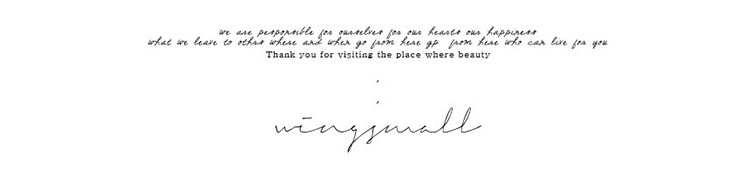 we are personsible for ourselves for our hearts our happiness
what we leave to othrs where and when go from here gp from here who can live for you
Thank you for visiting the place where beauty
wingsmall